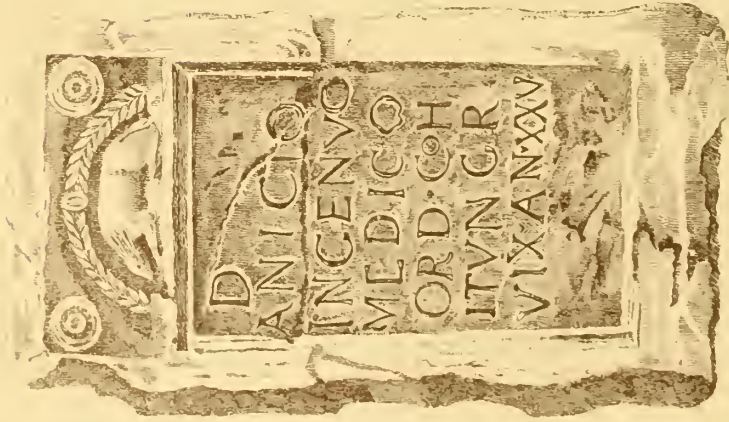 D
ANICIO
INGENVO
MEDICO
ORD·COH
ITVNGR
VIXAN·XXV